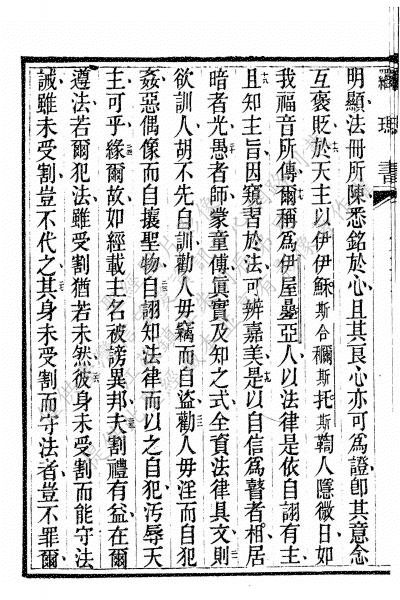 明顯法冊所陳悉銘於心且其良心亦可為證卽其意念
互褒貶於天主以伊伊穌斯合穪斯托斯鞫人隱微日如
我福音所傳爾稱為伊屋疊亞人以法律是依自詡有主
且知主旨因窺習於法可辨嘉美是以自信為瞽者相居
暗者光愚者師蒙童傅眞實及知之式全資法律具文則
欲訓人胡不先自訓勸人毋竊而自盜勸人毋淫而自犯
姦惡偶像而自攘聖物自詡知法律而以之自犯汚辱天
主可乎緣爾故如經載主名被謗異邦夫割禮有益在爾
遵法若爾犯法雖受割猶若未然彼身未受割而能守法
誡雖未受割豈不代之其身未受割而守法者豈不罪爾